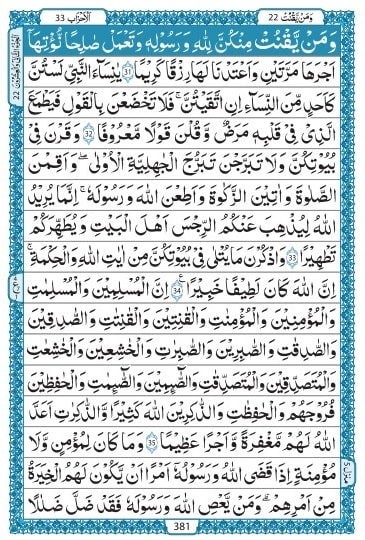 وَمَنْ يَّقْنُتْ 22 اَلْاَحْزَاب 33
وَمَنْ يَّقْنُتْ مِنْكُنَّ لِلّٰهِ وَرَسُوْلِهٖ وَتَعْمَلْ صَالِحًا نُّؤْتِهَاۤ
اَجْرَهَا مَرَّتَيْنِۙ وَاَعْتَدْنَا لَهَا رِزْقًا كَرِيْمًا 31 يٰنِسَآءَ النَّبِيِّ لَسْتُنَّ
كَاَحَدٍ مِّنَ النِّسَآءِ اِنِ اتَّقَيْتُنَّ فَلَا تَخْضَعْنَ بِالْقَوْلِ فَيَطْمَعَ
الَّذِيْ فِيْ قَلْبِهٖ مَرَضٌ وَّقُلْنَ قَوْلًا مَّعْرُوْفًا 32 وَقَرْنَ فِيْ
بُيُوْتِكُنَّ وَلَا تَبَرَّجْنَ تَبَرُّجَ الْجَاهِلِيَّةِ الْاُوْلٰى وَاَقِمْنَ
الصَّلٰوةَ وَاٰتِيْنَ الزَّكٰوةَ وَاَطِعْنَ اللّٰهَ وَرَسُوْلَهٗ ؕ اِنَّمَا يُرِيْدُ
اللّٰهُ لِيُذْهِبَ عَنْكُمُ الرِّجْسَ اَهْلَ الْبَيْتِ وَيُطَهِّرَكُمْ
تَطْهِيْرًا 33 وَاذْكُرْنَ مَا يُتْلٰى فِيْ بُيُوْتِكُنَّ مِنْ اٰيٰتِ اللّٰهِ وَالْحِكْمَةِ ؕ
اِنَّ اللّٰهَ كَانَ لَطِيْفًا خَبِيْرًا 34 اِنَّ الْمُسْلِمِيْنَ وَالْمُسْلِمٰتِ
وَالْمُؤْمِنِيْنَ وَالْمُؤْمِنٰتِ وَالْقٰنِتِيْنَ وَالْقٰنِتٰتِ وَالصّٰدِقِيْنَ
وَالصّٰدِقٰتِ وَالصّٰبِرِيْنَ وَالصّٰبِرٰتِ وَالْخٰشِعِيْنَ وَالْخٰشِعٰتِ
وَالْمُتَصَدِّقِيْنَ وَالْمُتَصَدِّقٰتِ وَالصَّآئِمِيْنَ وَالصّٰٓئِمٰتِ وَالْحٰفِظِيْنَ
فُرُوْجَهُمْ وَالْحٰفِظٰتِ وَالذّٰكِرِيْنَ اللّٰهَ كَثِيْرًا وَّالذّٰكِرٰتِ اَعَدَّ
اللّٰهُ لَهُمْ مَّغْفِرَةً وَّاَجْرًا عَظِيْمًا 35 وَمَا كَانَ لِمُؤْمِنٍ وَّلَا
مُؤْمِنَةٍ اِذَا قَضَى اللّٰهُ وَرَسُوْلُهٗۤ اَمْرًا اَنْ يَّكُوْنَ لَهُمُ الْخِيَرَةُ
مِنْ اَمْرِهِمْ ؕ وَمَنْ يَّعْصِ اللّٰهَ وَرَسُوْلَهٗ فَقَدْ ضَلَّ ضَلٰلًا
381